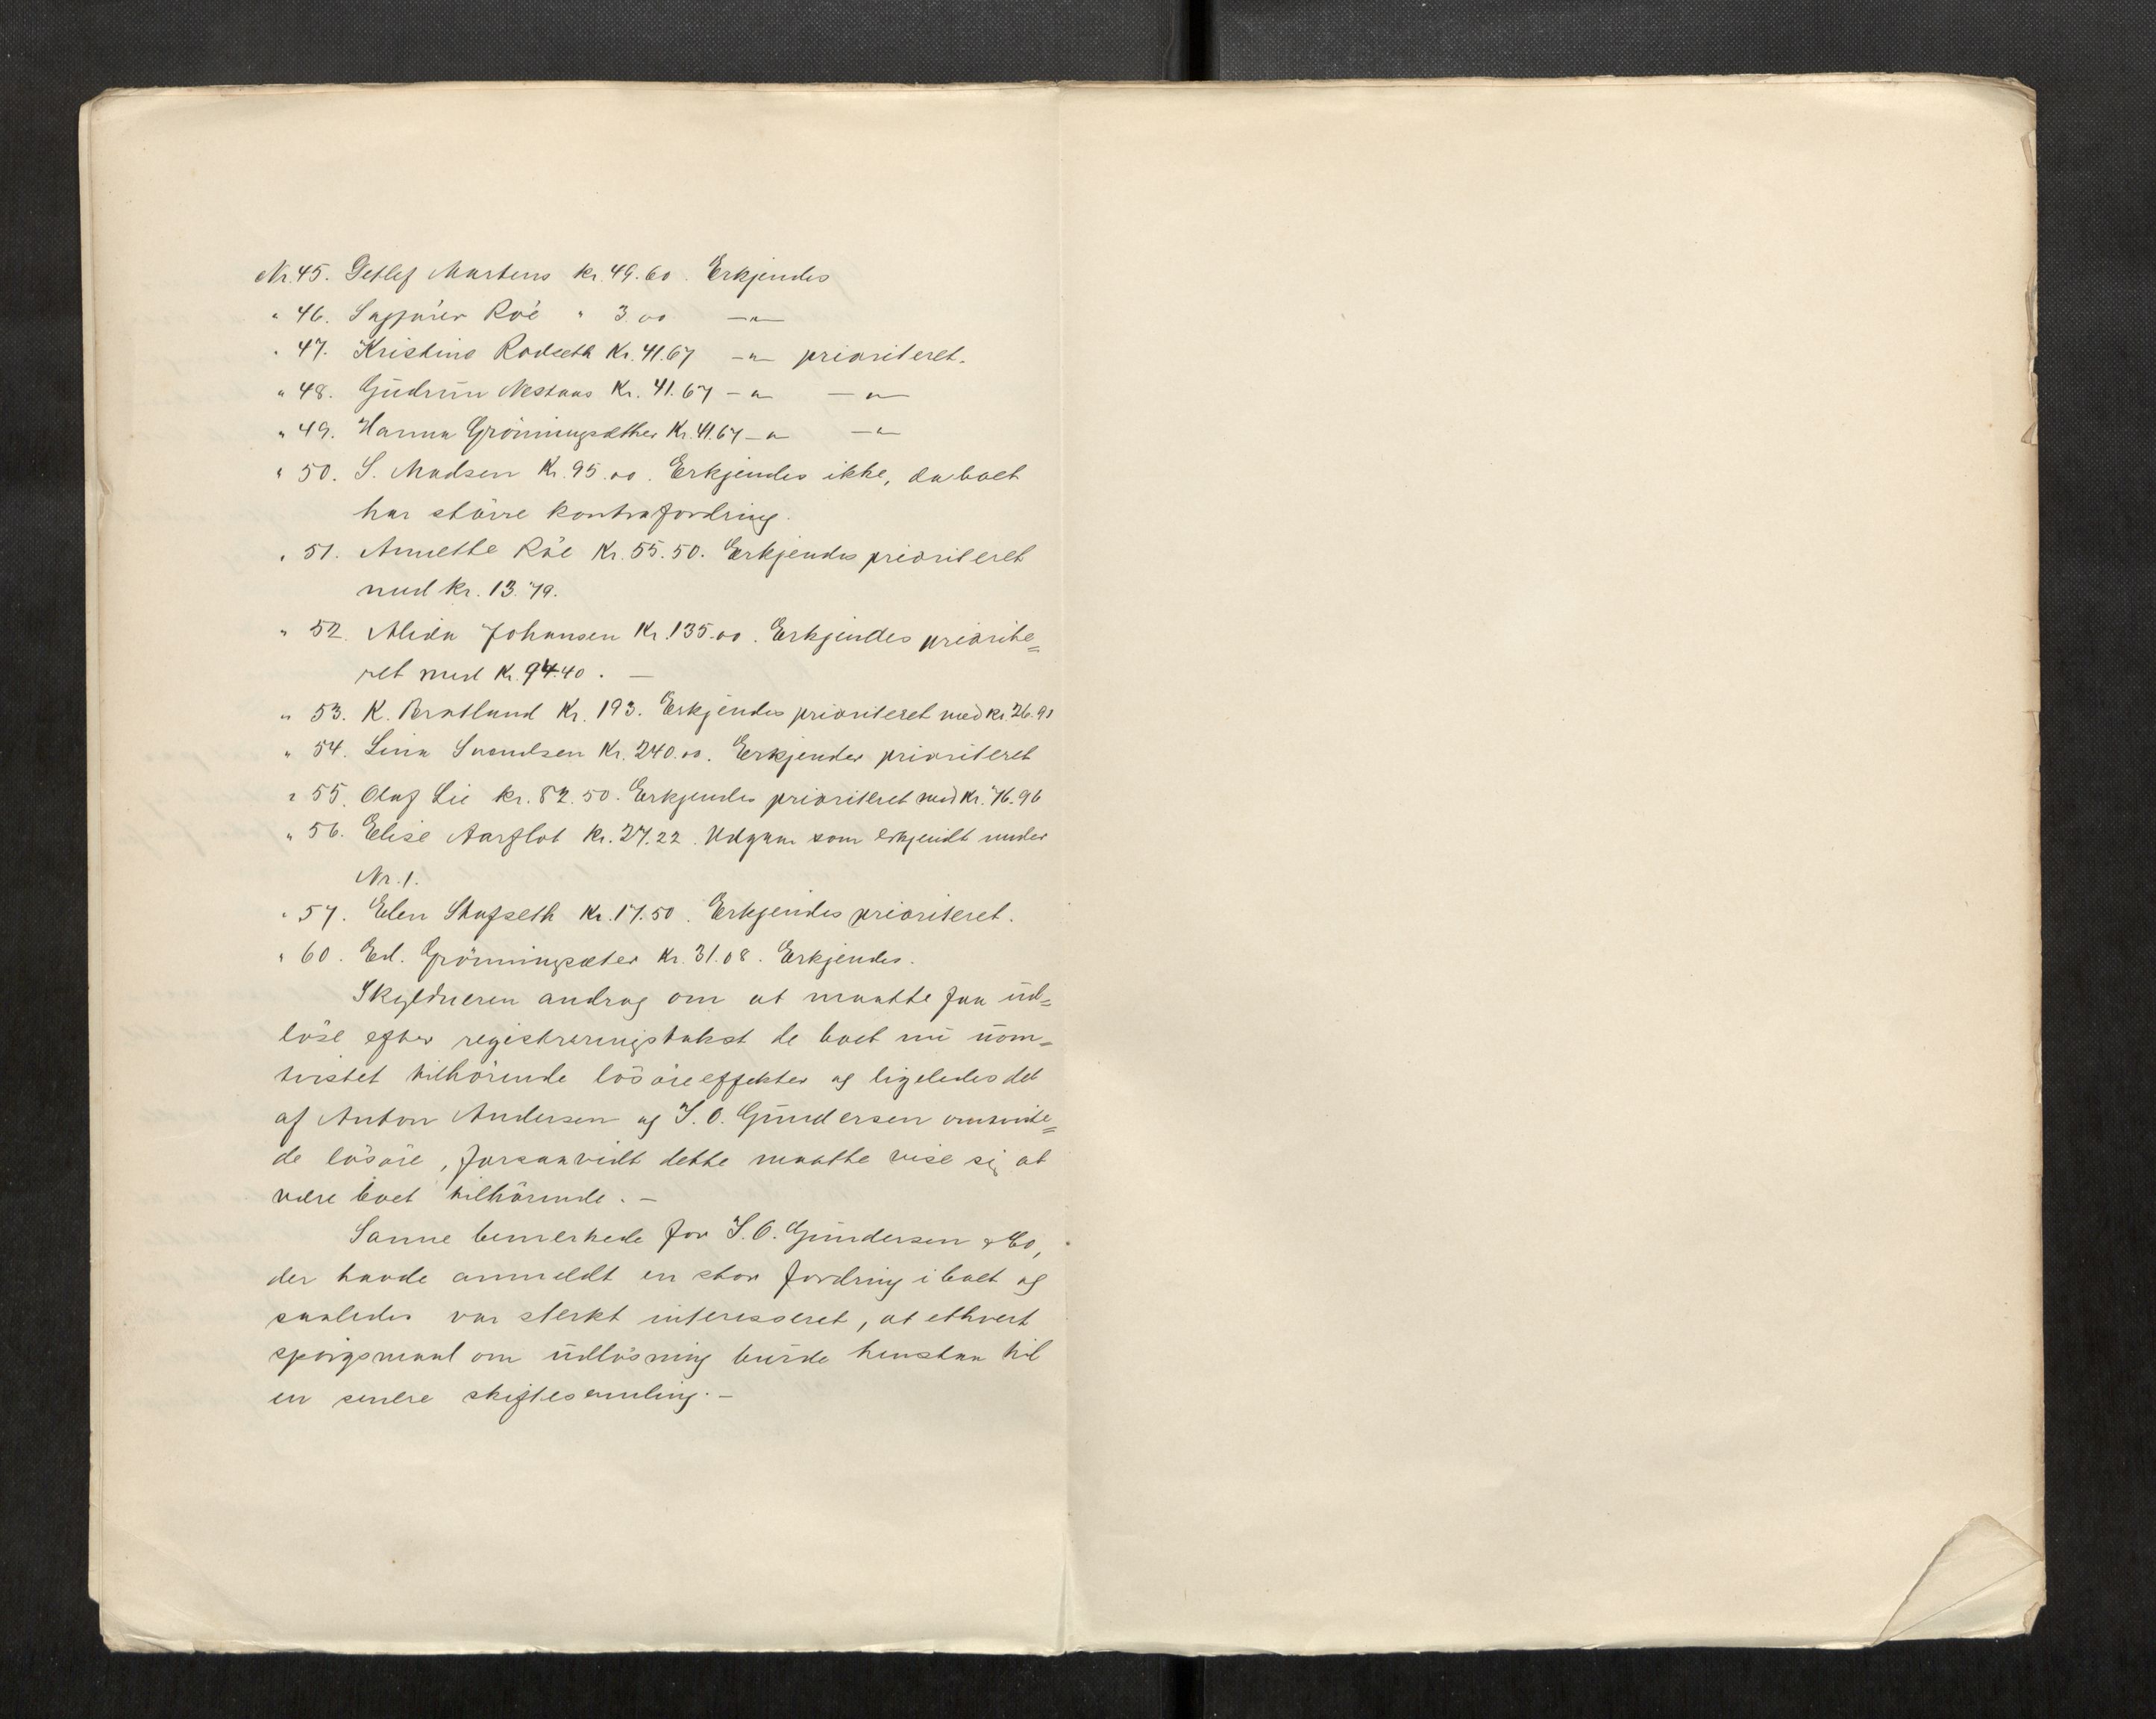 Nr. 45. Detlef Martens kr. 49.60. Erkjendes
" 46. Sagfører Røe " 3.00 —"—
" 47. Kristine Rodseth Kr. 41.67 —"— prioriteret.
" 48. Gudrun Nestaas Kr. 41.67 —"— —"—
" 49. Hanna Grønningsæther Kr. 41.67 —"— —"—
" 50. S. Madsen Kr. 95.00. Erkjendes ikke, da boet
har større kontrafordring.
" 51. Annette Røe Kr. 55.50. Erkjendes prioriteret
med kr. 13.79.
" 52. Alida Johansen Kr. 135.00. Erkjendes priorite=
ret med Kr. 94.40. —
" 53. K. Bratland Kr. 193. Erkjendes prioriteret med kr. 26.91
" 54. Lina Svendsen Kr. 240.00. Erkjendes prioriteret
" 55. Olaf Lie kr. 82.50. Erkjendes prioriteret med Kr. 76.96
" 56. Elise Aarflot kr. 27.22. Udgaar som erkjendt under
Nr. 1.
" 57. Elen Skafseth Kr. 17.50. Erkjendes prioriteret.
" 60. Ed. Grønningsæter Kr. 31.08. Erkjendes.
Skyldneren androg om at maatte faa ud=
løse efter registreringstakst de boet nu uom=
tvistet tilhørende løsøreeffekter og ligeledes det
af Anton Andersen og S. O. Gundersen omtviste=
de løsøre, forsaavidt dette maatte vise sig at
være boet tilhørende. —
Sanne bemerkede for S. O. Gundersen & Co,
der havde anmeldt en stor fordring i boet og
saaledes var sterkt interesseret, at ethvert
spørgsmaal om udløsning burde henstaa til
en senere skiftesamling. —